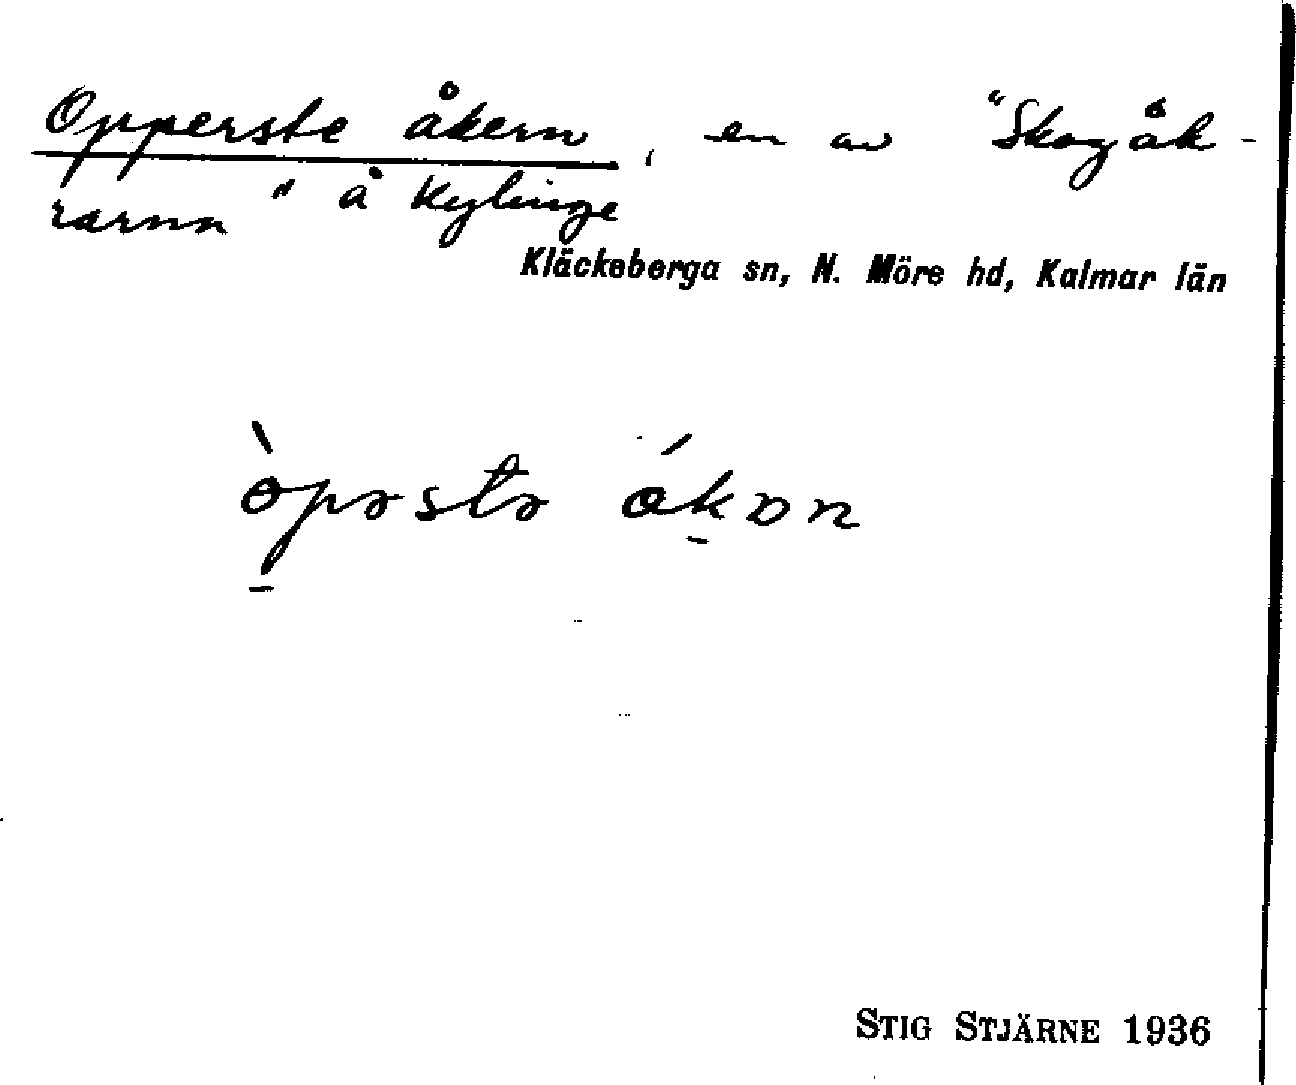 Opperste åkern, en av "Skogåk-
rarna" å Kylinge
Kläckeberga sn, N. Möre hd, Kalmar län
òpəstə ákɒn
STIG STJÄRNE 1936